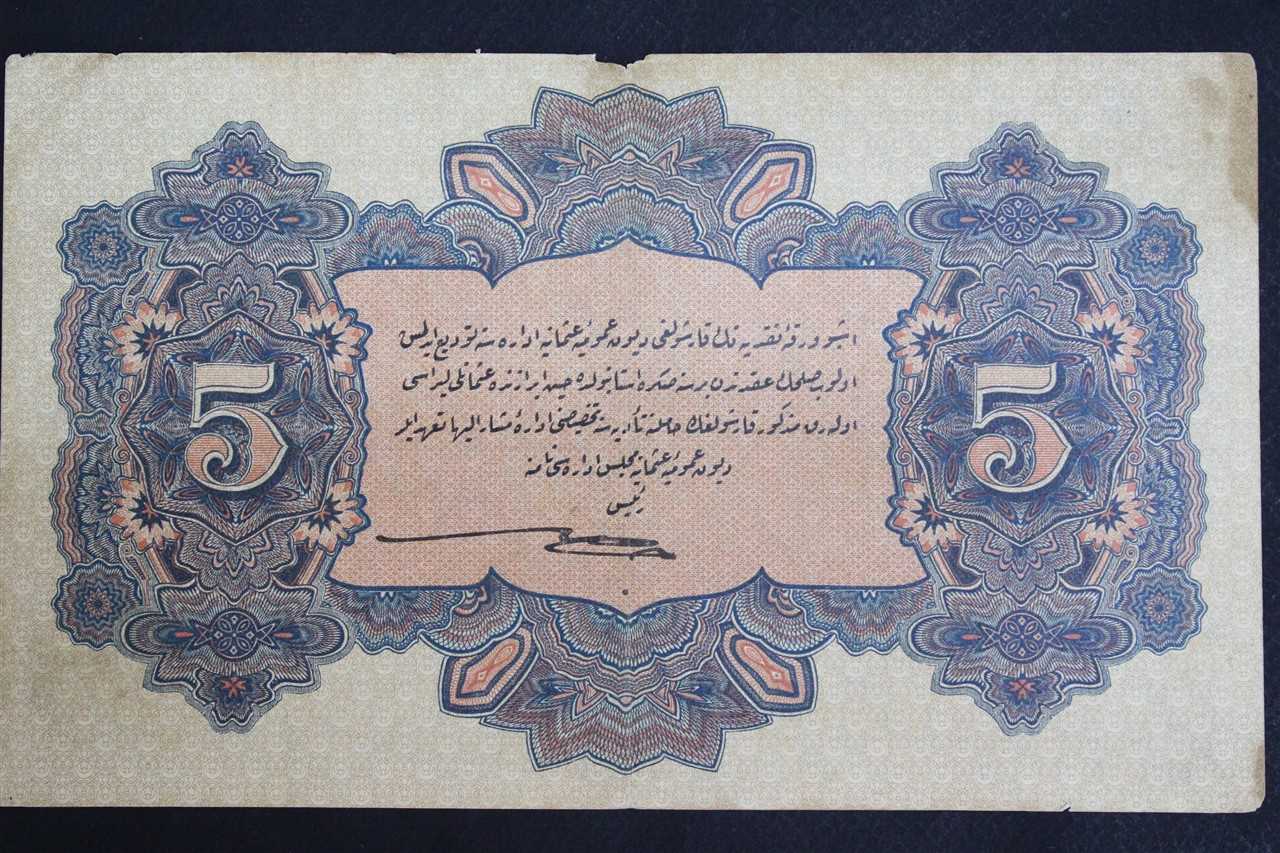 اشبو ورقهٔ نقدیه نك قارشولغی دیون عمومیهٔ عثمانیه اداره سنه تودیع ایدلمش
اولوب صلحك عقدندن بر سنه صكره استانبولده حین ابرازنده عثمانلی لیراسی
اوله رق مذكور قارشولغك حاملنه تأدیه سنه تخصیصنی ادارهٔ مشار الیها تعهد ایلر
دیون عمومیهٔ عثمانیه مجلس اداره سی نامنه
رئیس
5 5